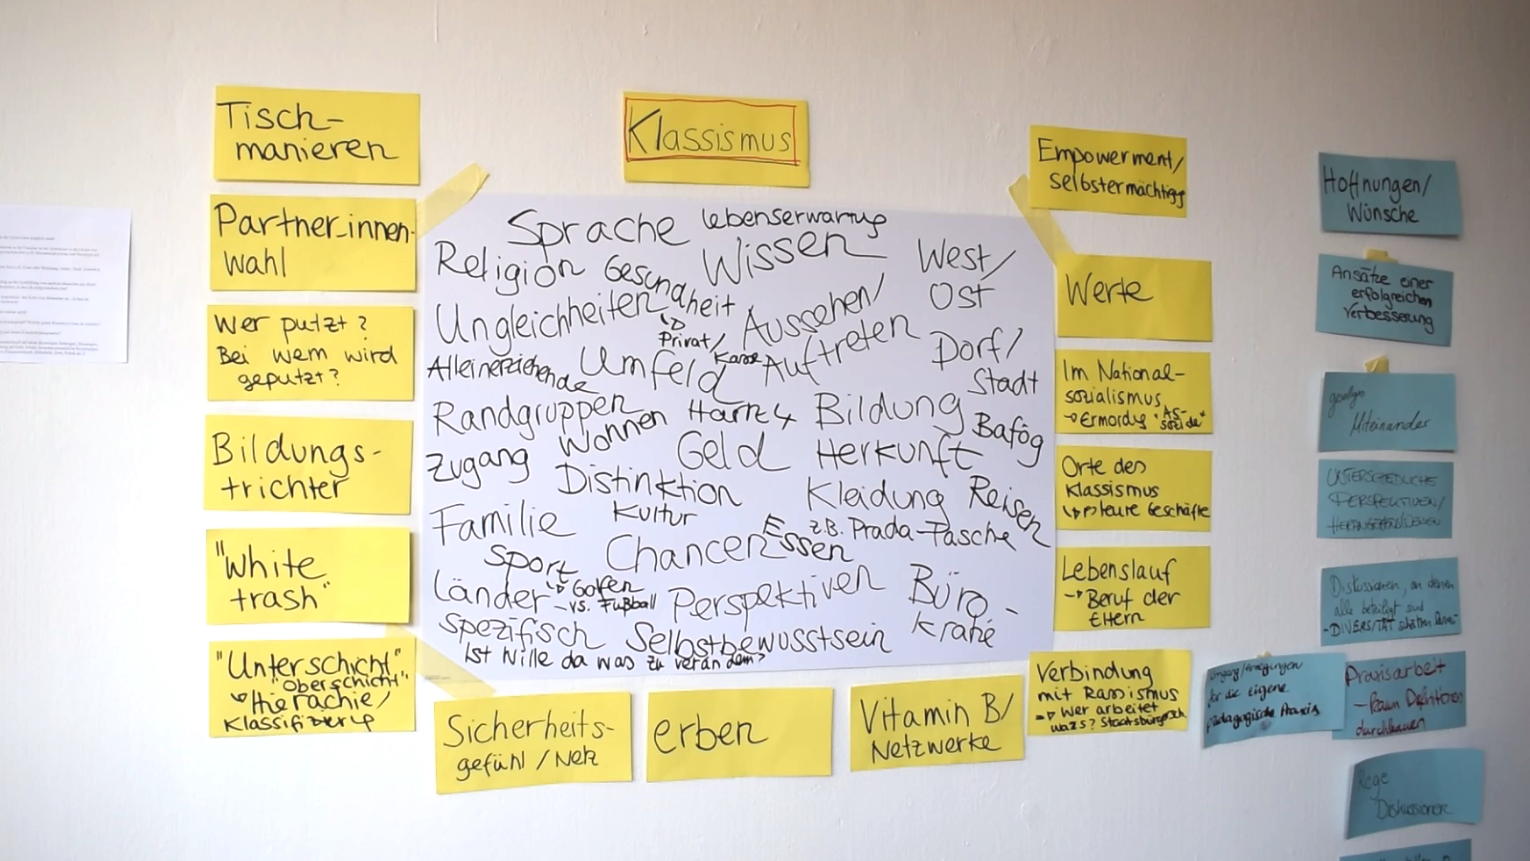 Tisch-
manieren
Partner_innen-
wahl
Wer putzt?
Bei wem wird
geputzt?
Bildungs-
trichter
"White
trash"
"Unterschicht"
"Oberschicht"
Hierachie/
Klassismus
Sprache
Lebenserwartung
Religion
Gesundheit
Wissen
West/
Ost
Ungleichheiten
Privat/
Kasse
Aussehen/
Auftreten
Dorf/
Stadt
Alleinerziehende
Umfeld
Randgruppen
Wohnen
Hartz 4
Bildung
Bafög
Zugang
Geld
Herkunft
Distinktion
Kleidung
Reisen
z.B. Prada-Tasche
Familie
Kultur
Essen
Sport
Golfen
vs. Fußball
Chancen
Länder-
spezifisch
Perspektiven
Büro-
kratie
Selbstbewusstsein
Ist Wille da was zu verändern?
Sicherheits-
gefühl / Netz
erben
Vitamin B/
Netzwerke
Empowerment/
Selbstermächtigg
Werte
Im National-
sozialismus
Ermordung "As-
soziale"
Orte des
Klassismus
teure Geschäfte
Lebenslauf
Beruf der
Eltern
Verbindung
mit Rassismus
Wer arbeitet
was? Staatsbürgersch.
Hoffnungen/
Wünsche
Ansätze einer
erfolgreichen
Verbesserung
Miteinander
UNTERSCHIEDLICHE
PERSPEKTIVEN/
Diskussionen, an denen
alle beteiligt sind
für die eigene
pädagogische Praxis
Praxisarbeit
durchkauen
Rege
Diskussionen